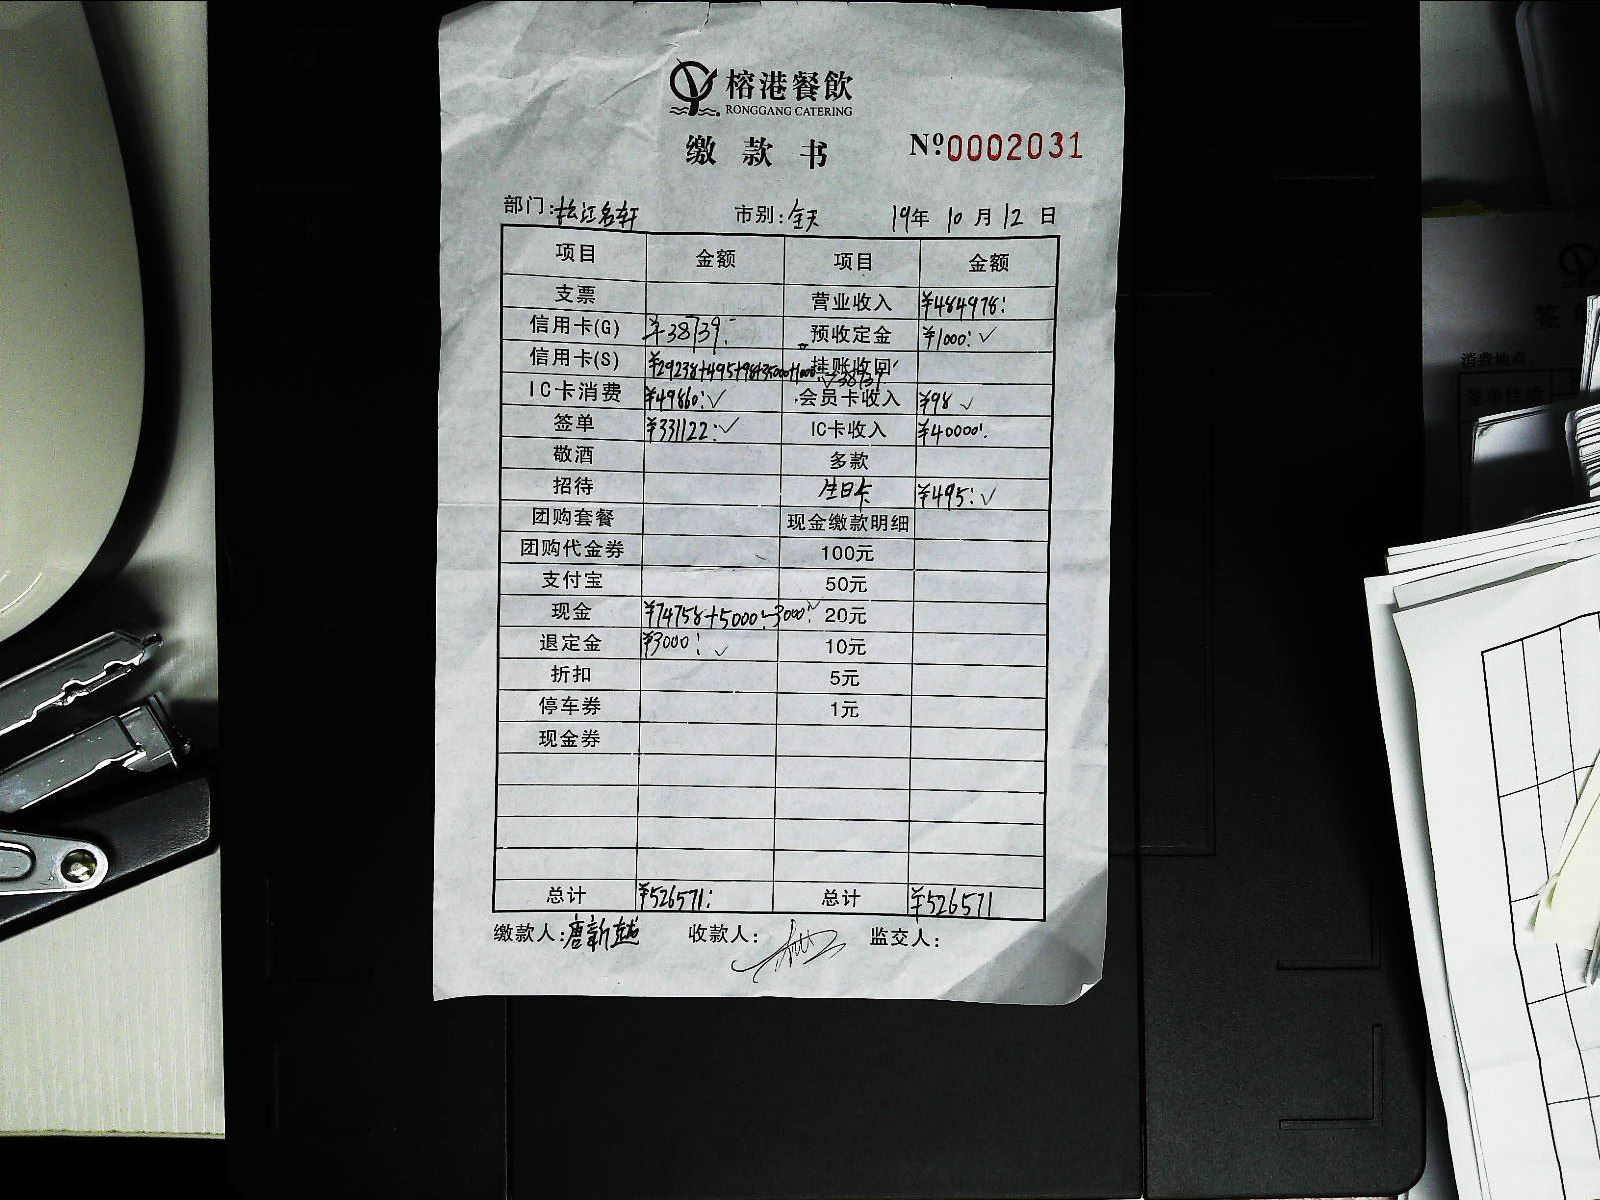 榕港餐飲
RONGGANG CATERING
缴款书 Nº0002031
部门:松江名轩 市别:全天 19年10月12日
项目 金额 项目 金额
支票 营业收入 ¥484978:
信用卡(G) ¥38739: 预收定金 ¥1000:✓
信用卡(S) ¥29238+495+98+35000+1000 挂账收回
IC卡消费 ¥49860:✓ 会员卡收入 ¥98 ✓
签单 ¥331122:✓ IC卡收入 ¥40000:
敬酒 多款
招待 生日卡 ¥495:✓
团购套餐 现金缴款明细
团购代金券 100元
支付宝 50元
现金 ¥74758+5000:-3000: 20元
退定金 ¥3000:✓ 10元
折扣 5元
停车券 1元
现金券
总计 ¥526571: 总计 ¥526571
缴款人:唐新越 收款人: 监交人:
消费地点:
签单性质